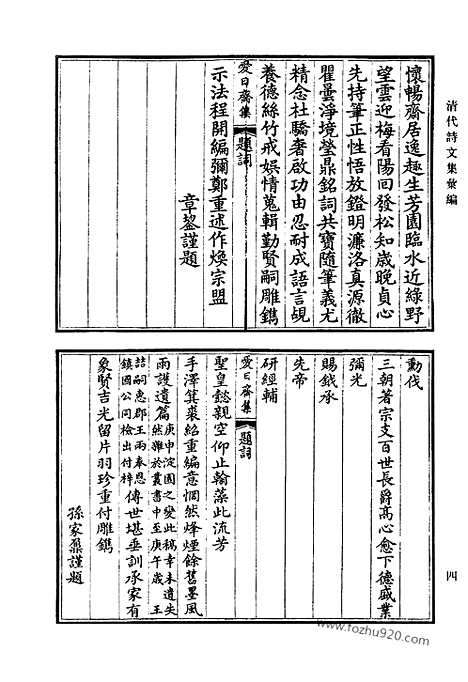 清代詩文集彙編
懷暢齋居逸趣生芳園臨水近綠野
望雲迎梅看陽回發松知歲晚貞心
先持筆正性悟放鐙明濂洛真源徹
瞿曇淨境瑩鼎銘詞共寶隨筆義尤
精念杜驕奢啟功由忍耐成語言覘
養德絲竹戒娛情蒐輯勤賢嗣雕鐫
愛日齋集 題詞
示法程開編彌鄭重述作煥宗盟
章鋆謹題
勳伐
三朝著宗支百世長爵高心愈下德盛業
彌光
賜鉞承
先帝
研經輔
愛日齋集 題詞
聖皇懿親空仰止翰藻此流芳
手澤箕裘紹重編意惘然烽煙餘舊墨風
雨護遺篇庚申淀園之變此稿幸未遺失
然雜於叢書中至庚午歲王
詰嗣惠郡王兩奉恩
鎮國公同檢出付梓傳世堪垂訓承家有
象賢吉光留片羽珍重付雕鐫
孫家鼐謹題
四
www.fozhu920.com